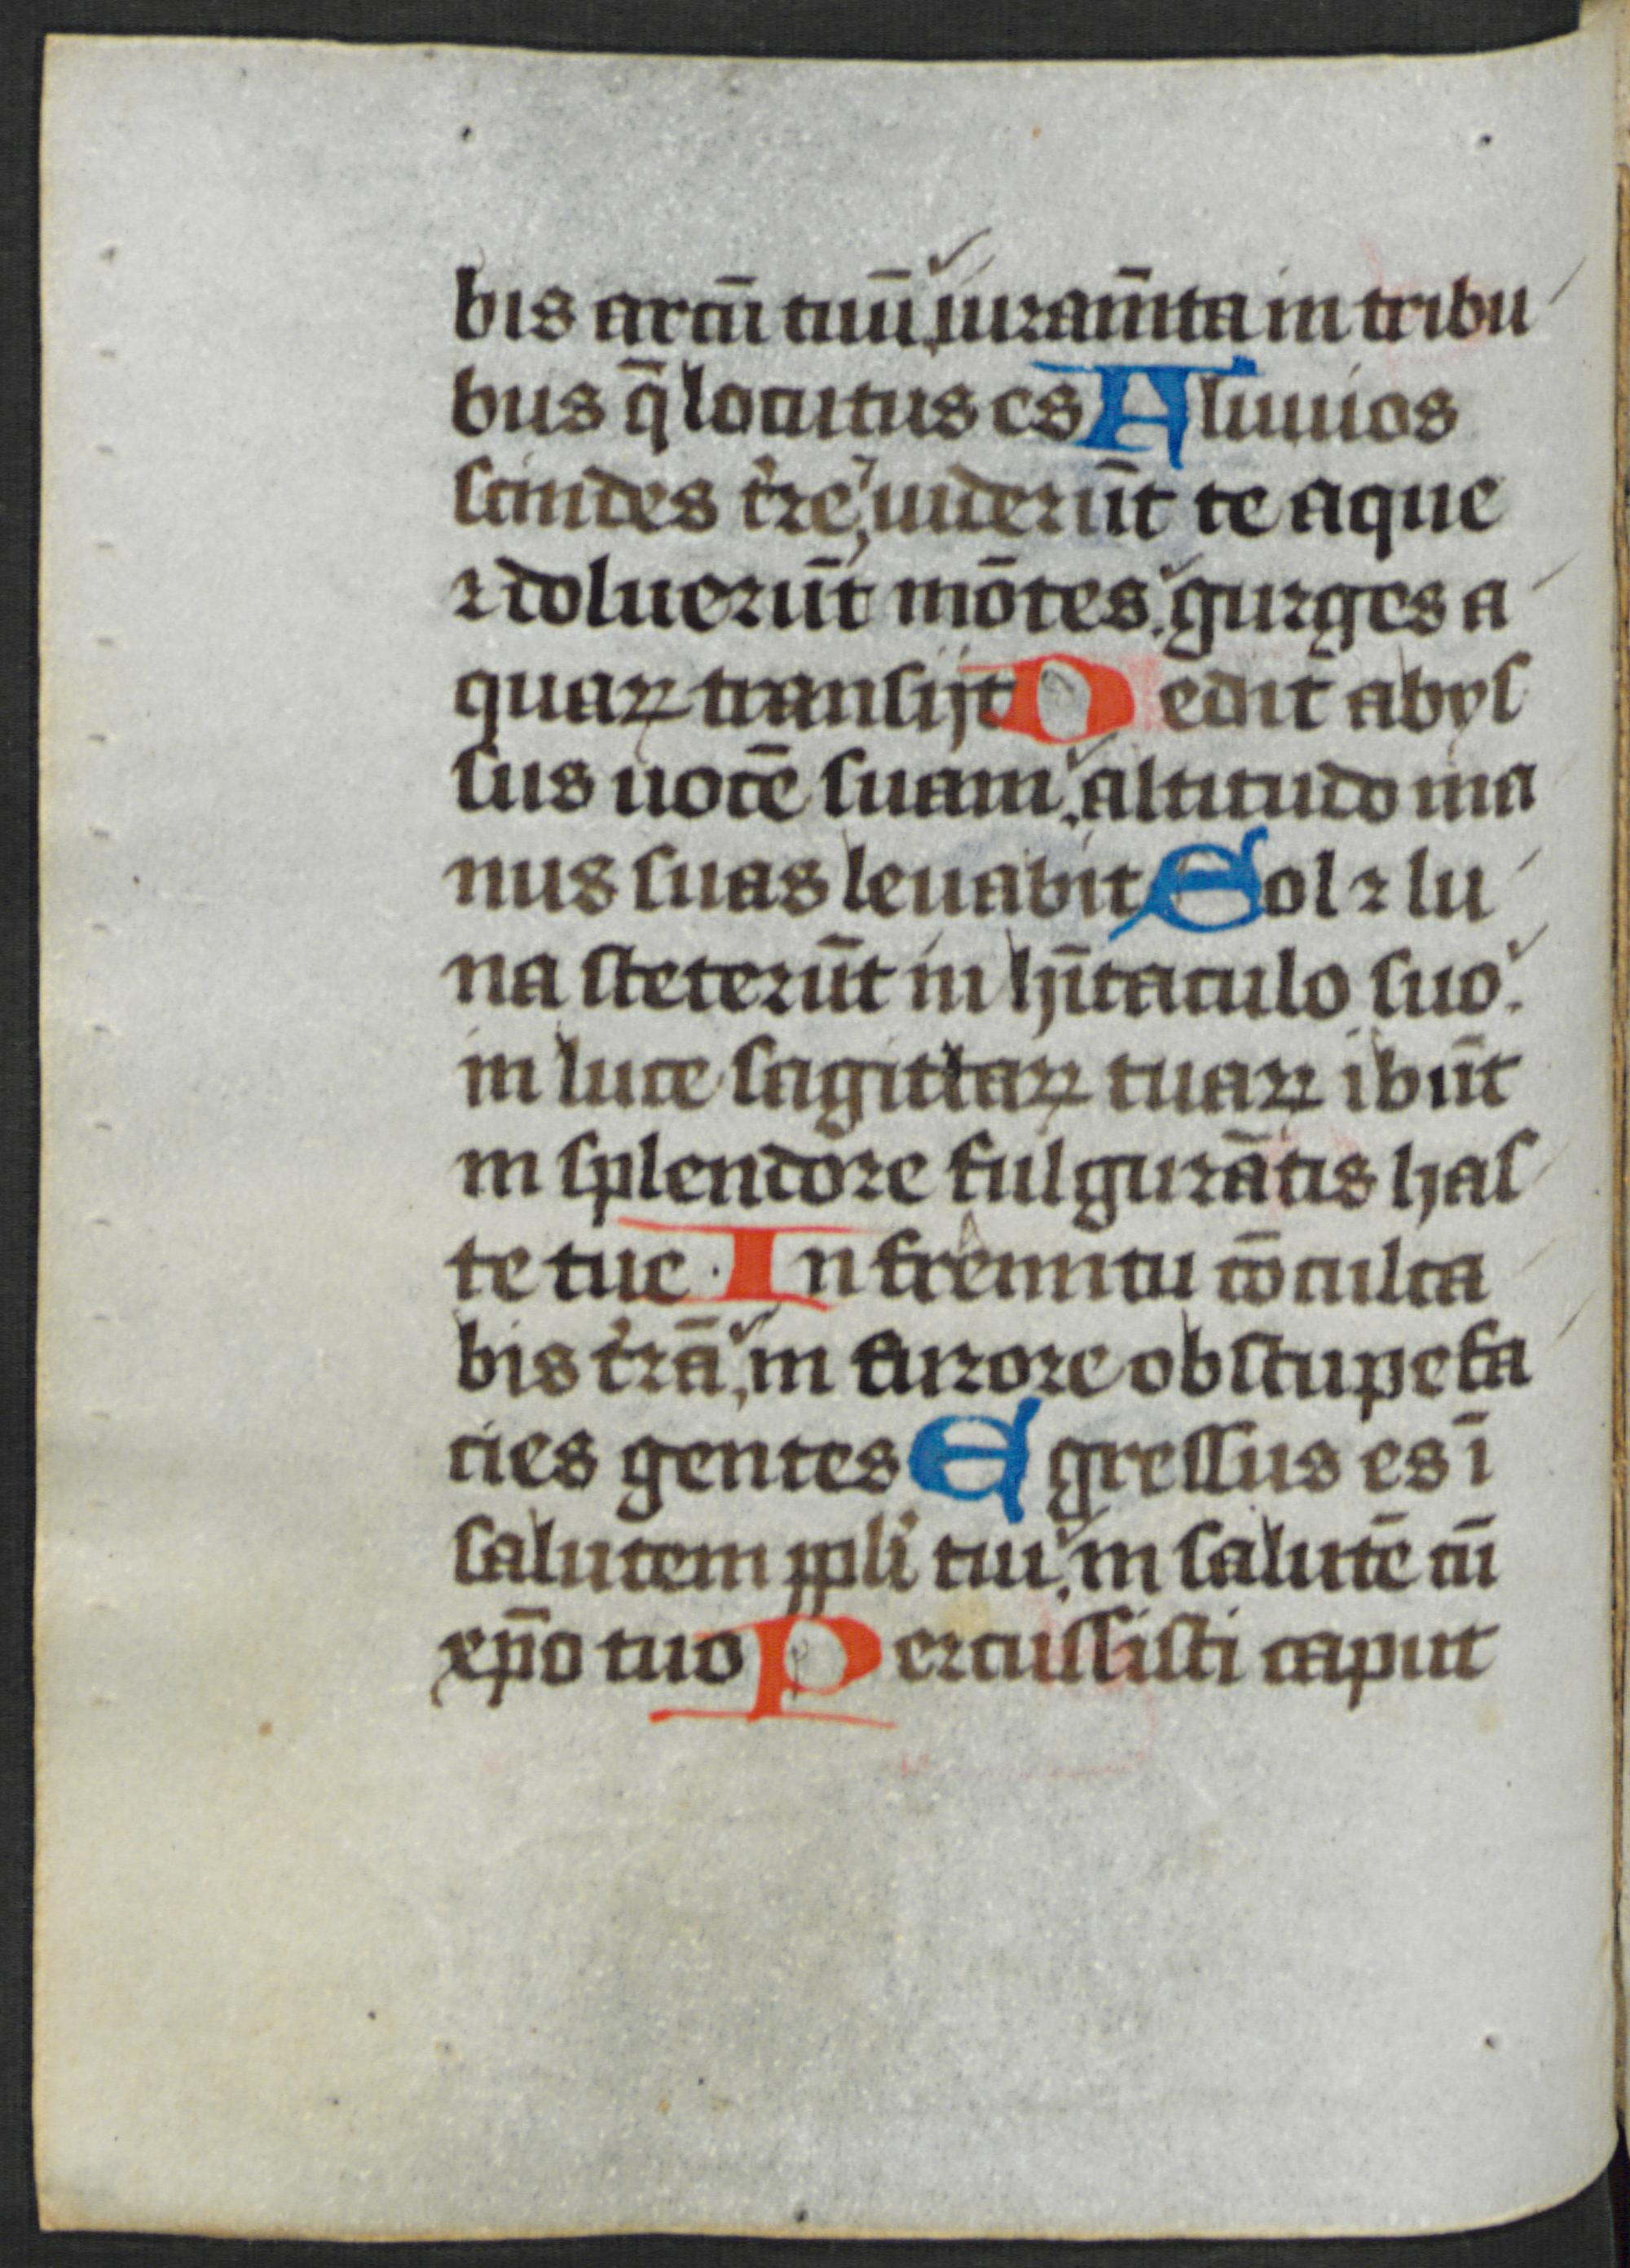 bis arcū tuū iuram̄ta in tribu
bus q̄ locutus es Aluuios
scindes t̾re uiderūt te aque
⁊ doluerūt mōtes gurges a
quaꝝ transijt Dedit abys
sus uocē suam altitudo ma
nus suas leuabit Sol ⁊ lu
na steterūt in hītaculo suo
in luce sagittaꝝ tuaꝝ ibūt
in splendore fulgurātis has
te tue. In fremitu cōculca
bis t̾rā in furore obstupefa
cies gentes Egressus es ī
salutem ppl̓i tui in salutē cū
xp̄o tuo Percussisti caput